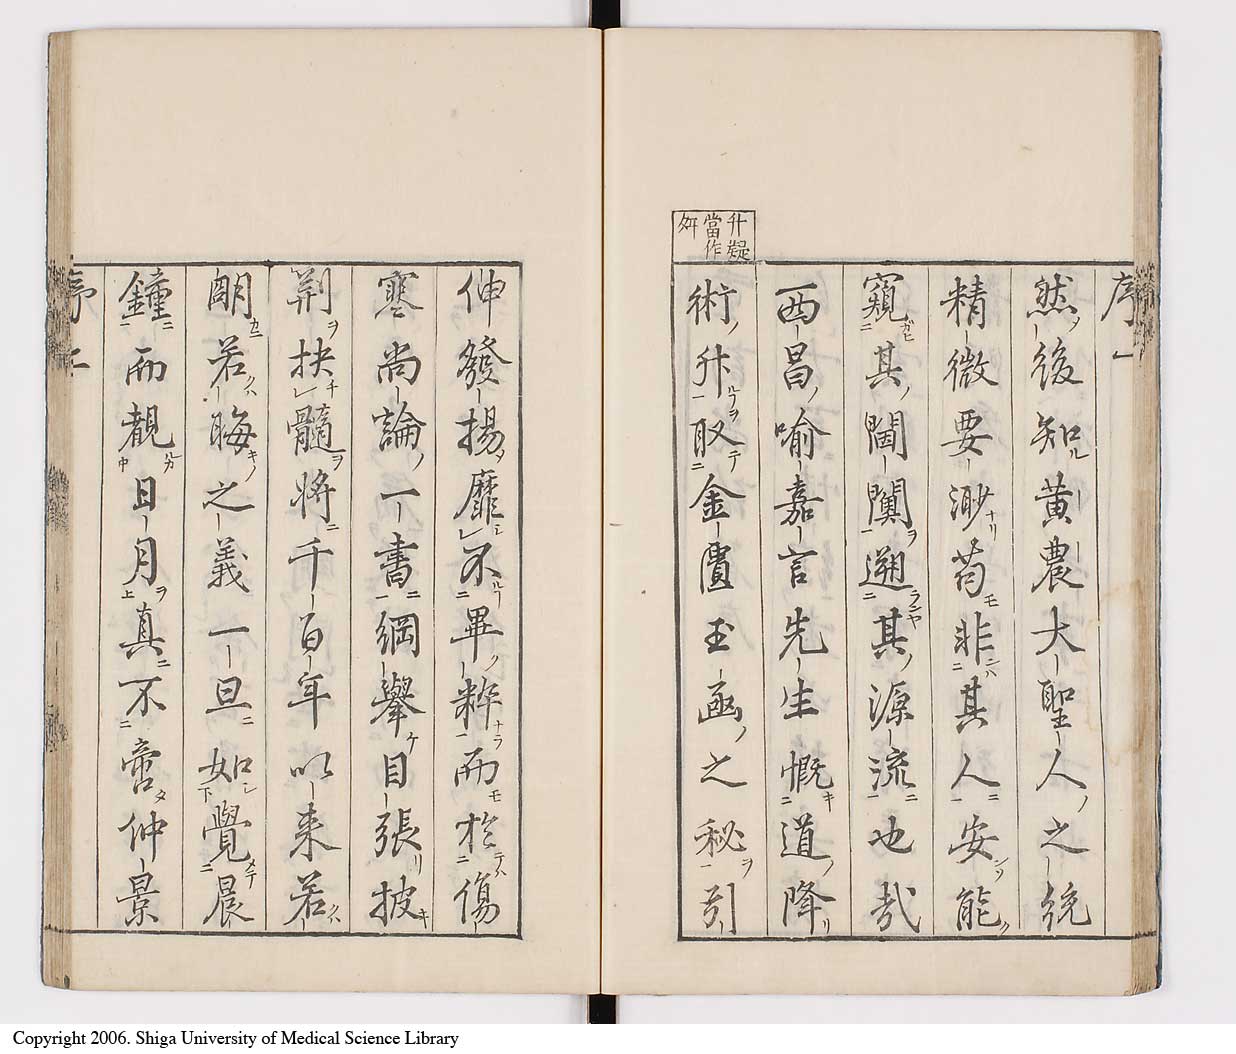 序一
升疑
當作
舛
然後知黄農大聖人之統
精微要渺苟非其人安能
窺其閫遡其源流也哉
西昌喻嘉言先生慨道降
術升取金匱玉函之秘引
伸發揚靡不畢粹而於傷
寒尚論一書綱舉目張披
荆抉髓將千百年以来若
朗若晦之義一旦如覺晨
鐘而覩日月真不啻仲景
序二
Copyright 2006. Shiga University of Medical Science Library